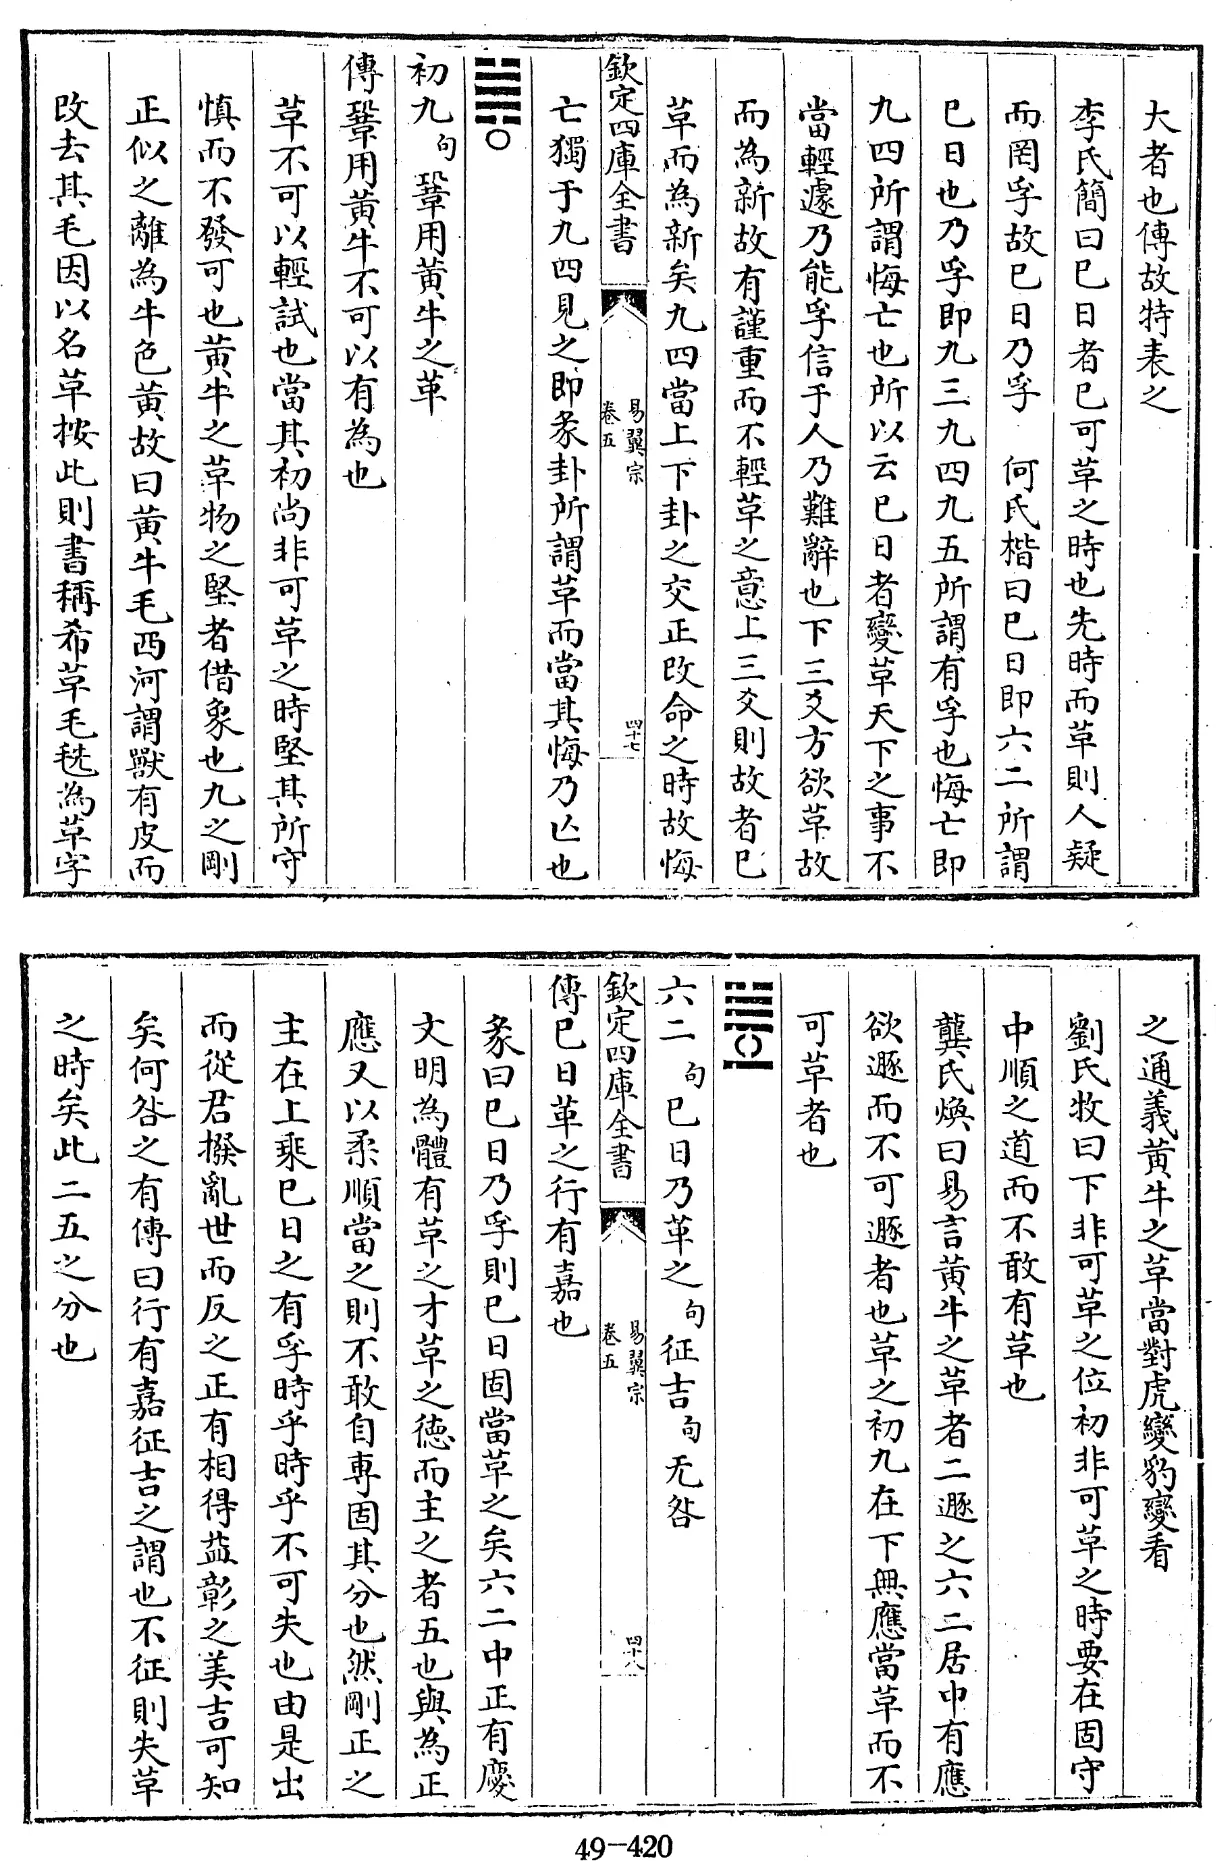 大者也傳故特表之
李氏簡曰巳日者巳可革之時也先時而革則人疑
而罔孚故巳日乃孚　何氏楷曰巳日即六二所謂
巳日也乃孚即九三九四九五所謂有孚也悔亡即
九四所謂悔亡也所以云巳日者變革天下之事不
當輕遽乃能孚信于人乃難辭也下三爻方欲革故
而為新故有謹重而不輕革之意上三爻則故者巳
革而為新矣九四當上下卦之交正改命之時故悔
亡獨于九四見之即彖卦所謂革而當其悔乃亡也
初九句鞏用黃牛之革
傳鞏用黃牛不可以有為也
革不可以輕試也當其初尚非可革之時堅其所守
慎而不發可也黃牛之革物之堅者借象也九之剛
正似之離為牛色黃故曰黃牛毛西河謂獸有皮而
改去其毛因以名革按此則書稱希革毛毨為革字
欽定四庫全書
易翼宗
卷五
四十七
之通義黃牛之革當對虎變豹變看
劉氏牧曰下非可革之位初非可革之時要在固守
中順之道而不敢有革也
龔氏煥曰易言黃牛之革者二遯之六二居中有應
欲遯而不可遯者也革之初九在下無應當革而不
可革者也
六二句巳日乃革之句征吉句无咎
傳巳日革之行有嘉也
彖曰巳日乃孚則巳日固當革之矣六二中正有慶
文明為體有革之才革之德而主之者五也與為正
應又以柔順當之則不敢自專固其分也然剛正之
主在上乘巳日之有孚時乎時乎不可失也由是出
而從君撥亂世而反之正有相得益彰之美吉可知
矣何咎之有傳曰行有嘉征吉之謂也不征則失革
之時矣此二五之分也
欽定四庫全書
易翼宗
卷五
四十八
49-420